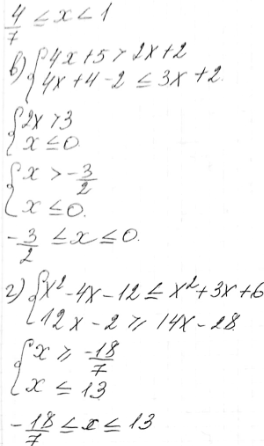 4/7 ≤ x < 1
в) { 4x + 5 > 2x + 2
4x + 4 - 2 ≤ 3x + 2.
{ 2x > 3
x ≤ 0
{ x > -3/2
x ≤ 0.
-3/2 ≤ x ≤ 0.
г) { x² - 4x - 12 ≤ x² + 3x + 6
12x - 2 ≥ 14x - 28
{ x ≥ -18/7
x ≤ 13
-18/7 ≤ x ≤ 13